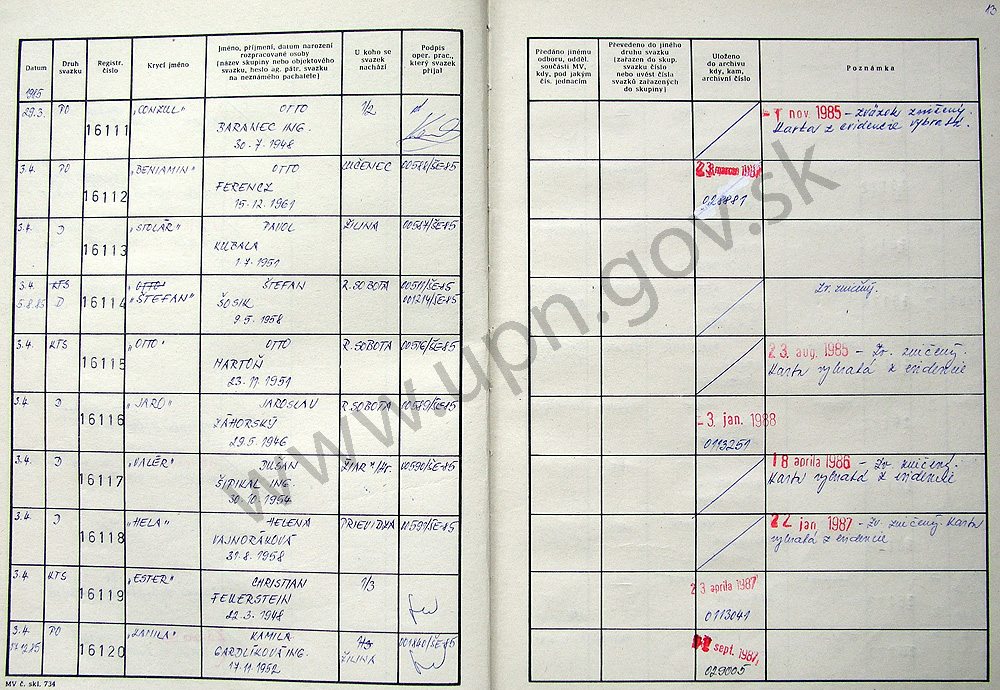 13
Datum
Druh svazku
Registr. číslo
Krycí jméno
Jméno, příjmení, datum narození
rozpracované osoby
(název skupiny nebo objektového
svazku, heslo ag. pátr. svazku
na neznámého pachatele)
U koho se svazek nachází
Podpis oper. prac., který svazek přijal
Předáno jinému odboru, odděl. součásti MV, kdy, pod jakým čís. jednacím
Převedeno do jiného druhu svazku (zařazen do skup. svazku číslo nebo uvést číslo svazků zařazených do skupiny)
Uloženo do archivu kdy, kam, archivní číslo
Poznámka
1985
29.3. PO 16111 „CONZUL" OTTO 1/2
BARANEC ING.
30.7.1948
1 nov. 1985 - zväzok zničený.
Karta z evidencie vybratá.
3.4. PO 16112 „BENIAMIN" OTTO LUČENEC
FERENCZ
15.12.1961
028881
3.4. D 16113 „STOLÁR" PAVOL ŽILINA 00587/ŠE-85
KUBALA
1.7.1951
3.4. KTS 16114 „OTTO" ŠTEFAN R. SOBOTA
5.8.85 D „ŠTEFAN" ŠOSIK 001214/ŠE-85
9.5.1958
Zv. zničený.
3.4. KTS 16115 „OTTO" OTTO R. SOBOTA 00576/ŠE-85
MARTOŇ
23.11.1951
23. aug. 1985 - Zv. zničený.
Karta vybratá z evidencie
3.4. D 16116 „JARO" JAROSLAV R. SOBOTA 00589/ŠE-85
ZÁHORSKÝ
29.5.1946
- 3. jan. 1988
0113251
3.4. D 16117 „VALÉR" DUŠAN ŽIAR n/Hr. 00590/ŠE-85
ŠIPIKAL ING.
30.10.1954
18 apríla 1986 - Zv. zničený.
Karta vybratá z evidencie
3.4. D 16118 „HELA" HELENA PRIEVIDZA 00591/ŠE-85
VAJNORÁKOVÁ
31.8.1958
22 jan. 1987 - Zv. zničený. Karta
vybratá z evidencie
3.4. KTS 16119 „ESTER" CHRISTIAN 1/3
FEUERSTEIN
22.3.1948
23 apríla 1987
0113041
3.4. PO 16120 „KAMILA" KAMILA
GARDLÍKOVÁ ING. ŽILINA
17.11.1952
sept. 1987
029005
MV č. skl. 734
www.upn.gov.sk